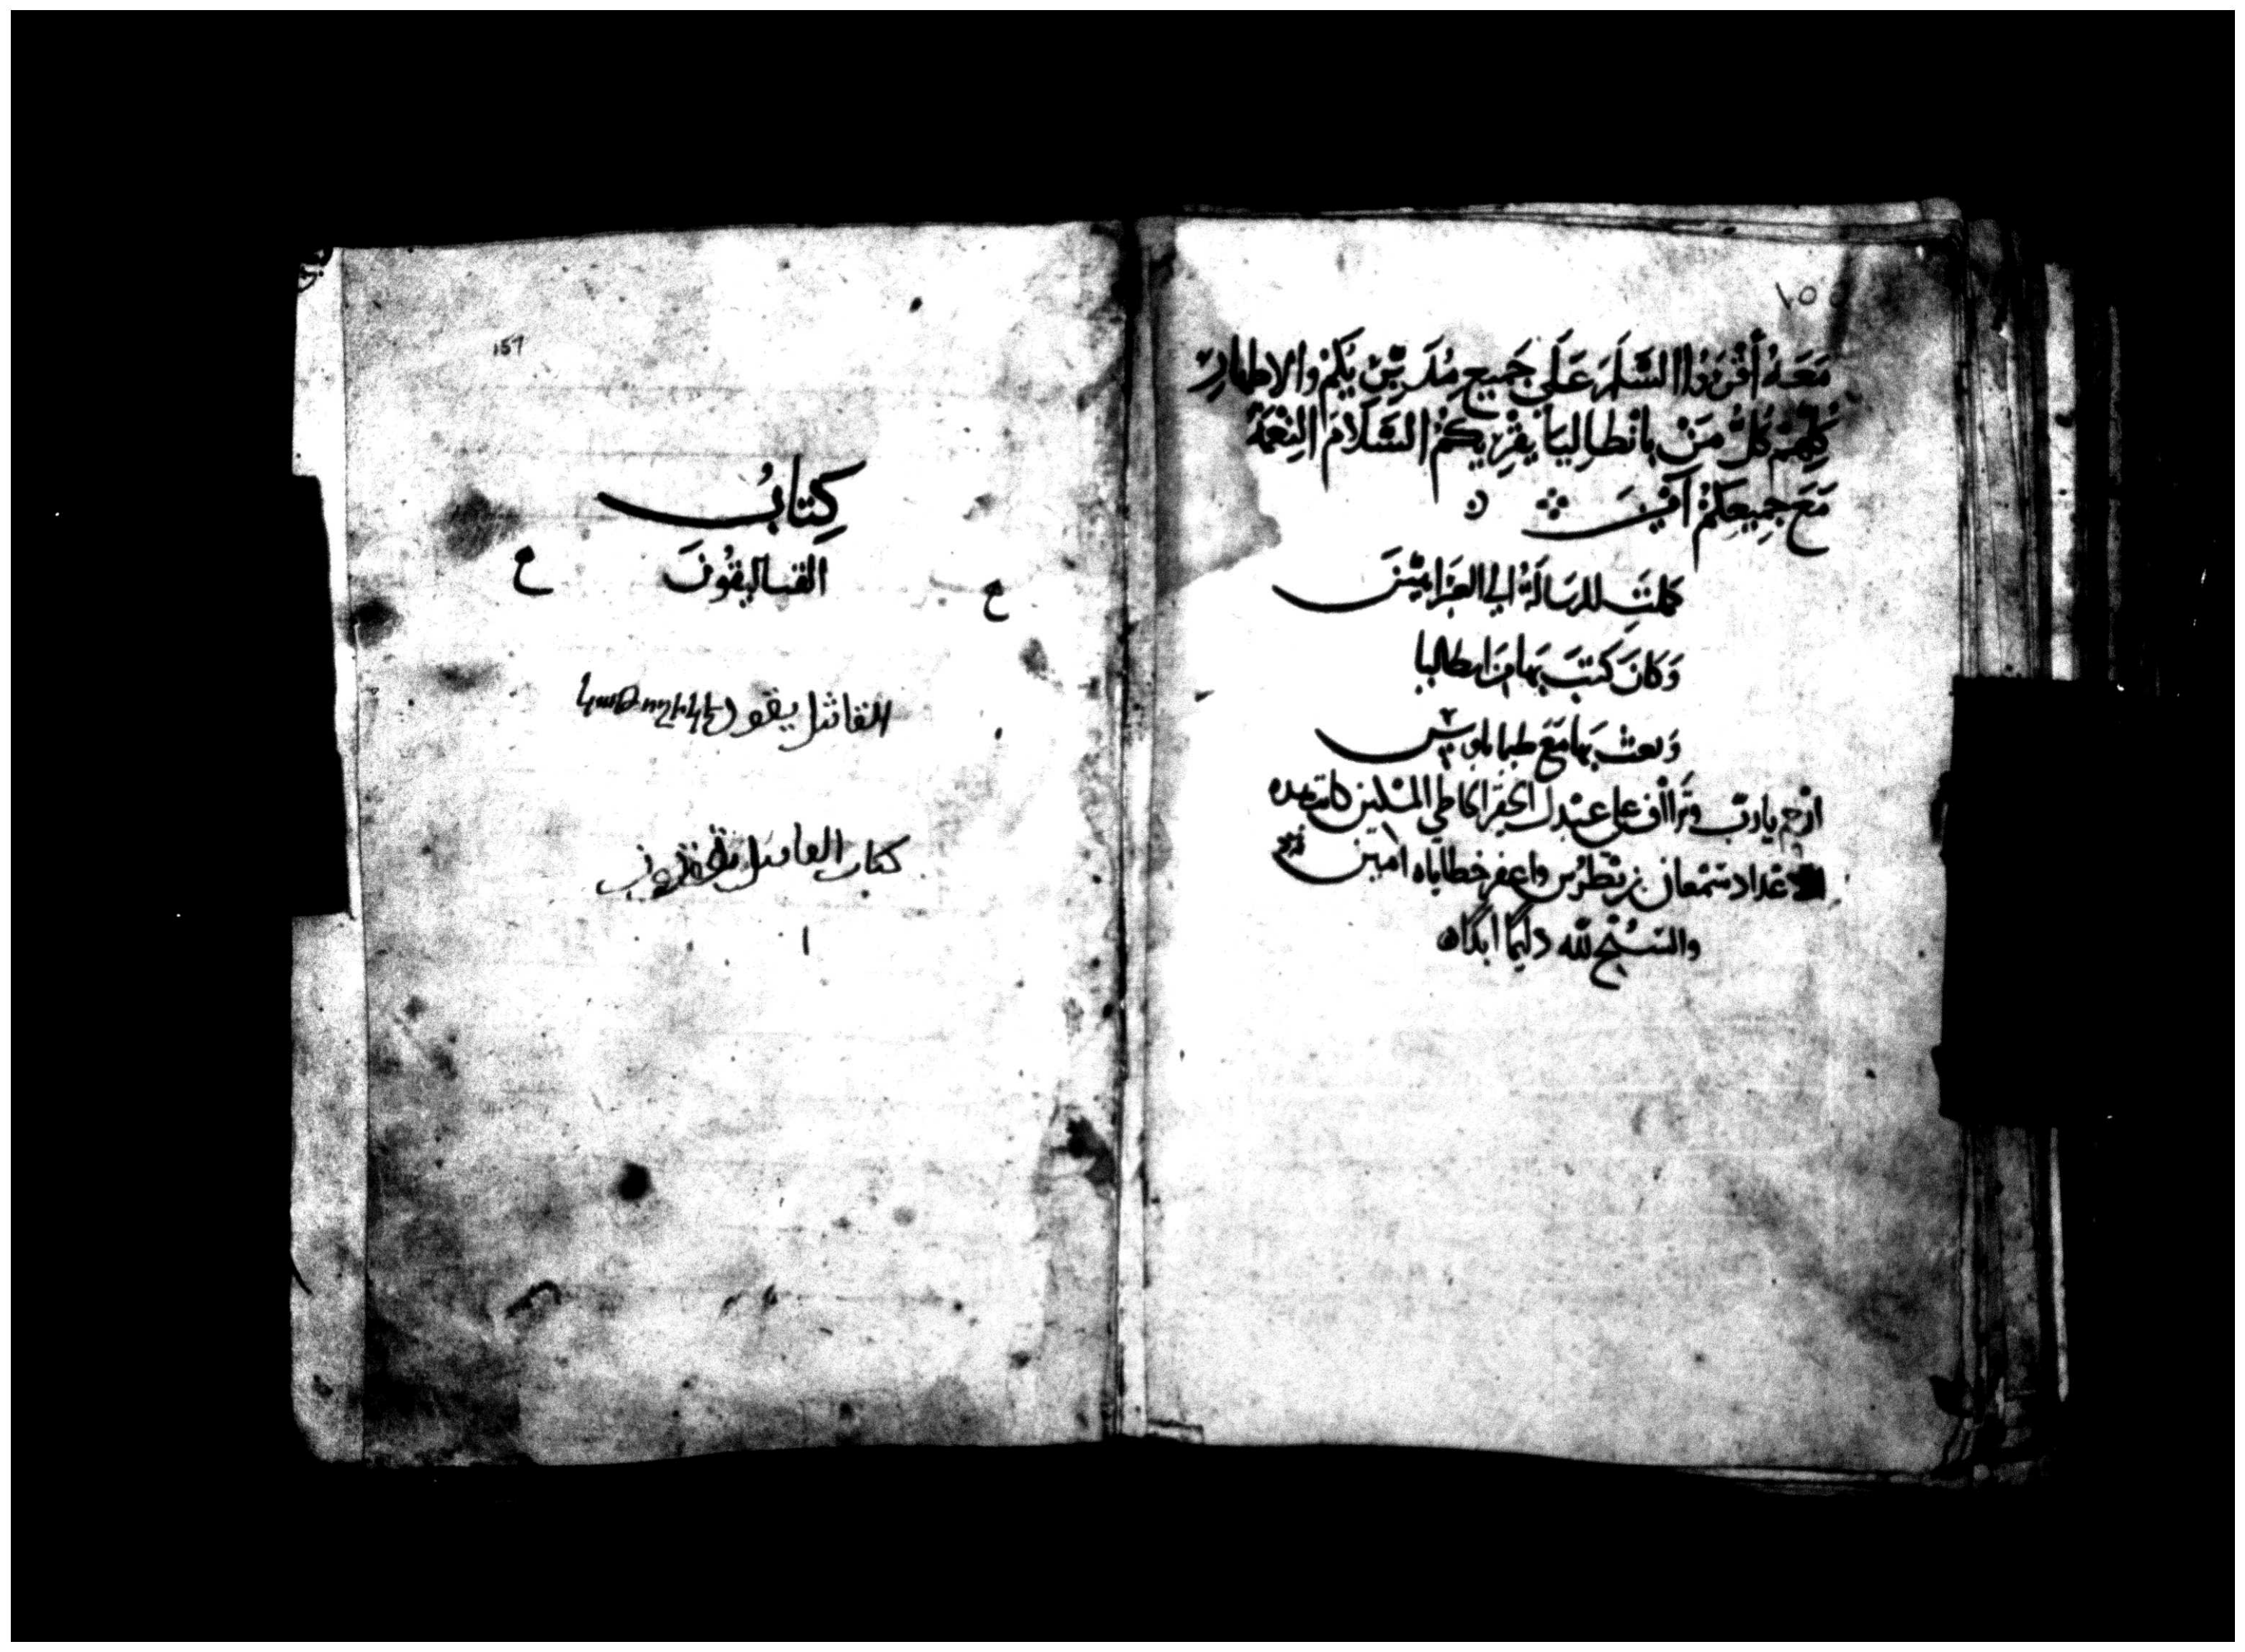 ١٥٥
مَعَهُ أَقْرِيُوا السَّلَمَ عَلَى جَمِيعِ مُدَبِّرِيكُمْ والاطهارِ
كُلِّهِمْ كُلُّ مَنْ بانْطالِيَا يَقْرِيكُمُ السَّلَامَ النِعْمَةُ
مَعَ جَمِيعِكُمْ آمِينَ
كملَتِ الرسَالَةُ الي العبرانيين
وَكانَ كَتَبَ بِهَا مِنْ ايطاليا
وَبعث بِهَا مَعَ طيماثاوس
ارْحم يارب وتَرااف على عَبْدك الحقير الخاطي المسكين كاتب هذه
الاعداد سَمْعان بن بُطْرُس واغفر خطاياه امين
والتسْبيح لله دايمًا ابدًا
157
كِتابُ
القتاليقُونَ
ع
ع
القاثل يقو
كتاب القاتيل يقون
١